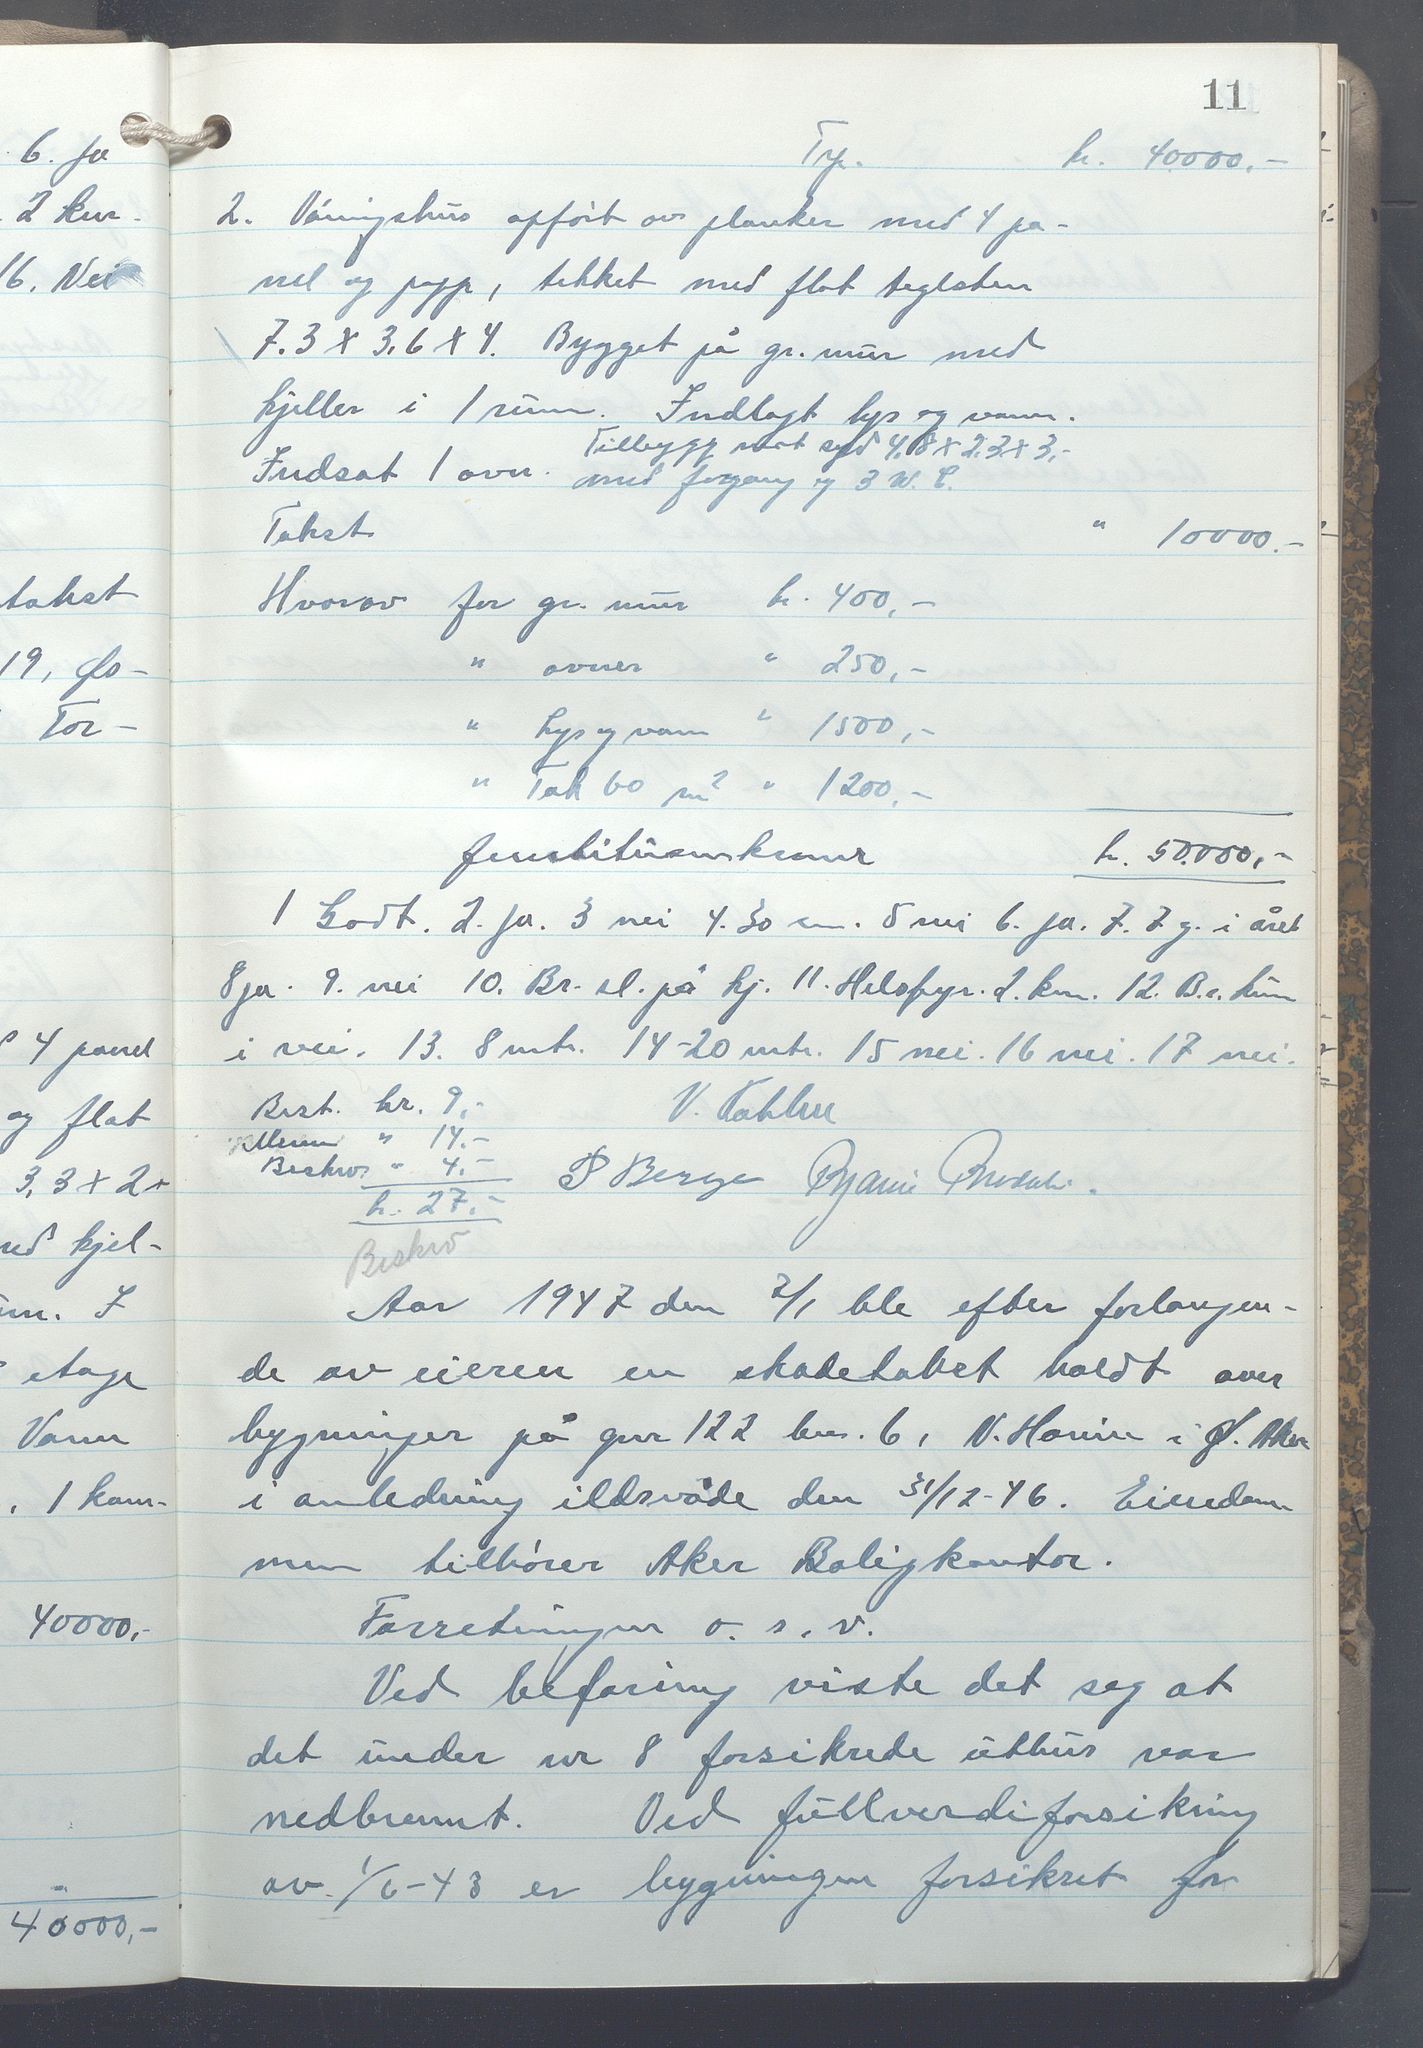 11
6. Ja
2 kur-
16. Nei
takst
19, Øs-
Tor-
4 panel
og flat
3,3 x 2 x
med kjel-
um. I
etage
Vann
, 1 kam-
40000,-
"
40000,-
Trp. kr. 40000,-
2. Våningshus opført av planker med 4 pa-
nel og papp, tekket med flat teglsten
7.3 X 3,6 X 4. Bygget på gr. mur med
kjeller i 1 rum. Indlagt lys og vann.
Tilbygg mot syd 4,8 x 2,3 x 3,-
Indsat 1 ovn. med forgang og 3 W.C.
Takst " 10000.-
Hvorav for gr. mur kr. 400,-
" ovner " 250,-
" Lys og vann " 1500,-
" Tak 60 m² " 1200,-
kr. 50.000,-
1 Godt. 2. Ja. 3 nei 4. 30 cm. 5 nei 6. ja. 7. 7 g. i året
8 ja. 9. nei 10. Br. sl. på hj. 11. Helsfyr. 2. km. 12. B.r. kum
i vei. 13. 8 mtr. 14-20 mtr. 15 nei. 16 nei. 17 nei.
Best. kr. 9,-
V. Køhler
Menn " 14.-
Beskriv. " 4.-
P Berge Bjarne
kr. 27.-
Beskrev
Aar 1947 den 2/1 ble efter forlangen-
de av eieren en skadetakst holdt over
bygninger på gnr 122 bnr. 6, N. Hovin i Ø. Aker
i anledning ildsvåde den 31/12-46. Eiendom-
men tilhører Aker Boligkontor.
Forretningen o. s. v.
Ved befaring viste det seg at
det under nr 8 forsikrede uthus var
nedbrennt. Ved fullverdiforsikring
av 1/6-43 er bygningen forsikret for